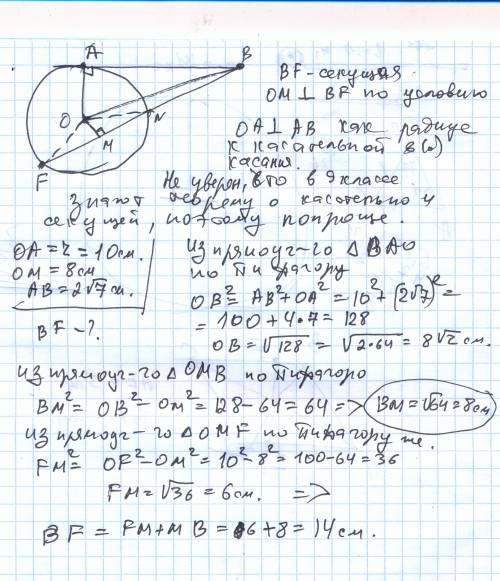 A
B
O
M
N
F
BF - секущая
OM ⊥ BF по условию
OA ⊥ AB как радиус
к касательной в (·)
касания.
Не уверен, что в 9 классе
знают теорему о касательной и
секущей, поэтому попроще.
OA = r = 10см.
OM = 8см
AB = 2√7 см.
BF - ?
Из прямоуг-го △ BAO
по Пифагору
OB² = AB² + OA² = 10² + (2√7)² =
= 100 + 4•7 = 128
OB = √128 = √2•64 = 8√2 см.
Из прямоуг-го △ OMB по Пифагору
BM² = OB² - OM² = 128 - 64 = 64 => BM = √64 = 8см
Из прямоуг-го △ OMF по Пифагору же.
FM² = OF² - OM² = 10² - 8² = 100 - 64 = 36
FM = √36 = 6см. =>
BF = FM + MB = 6 + 8 = 14 см.